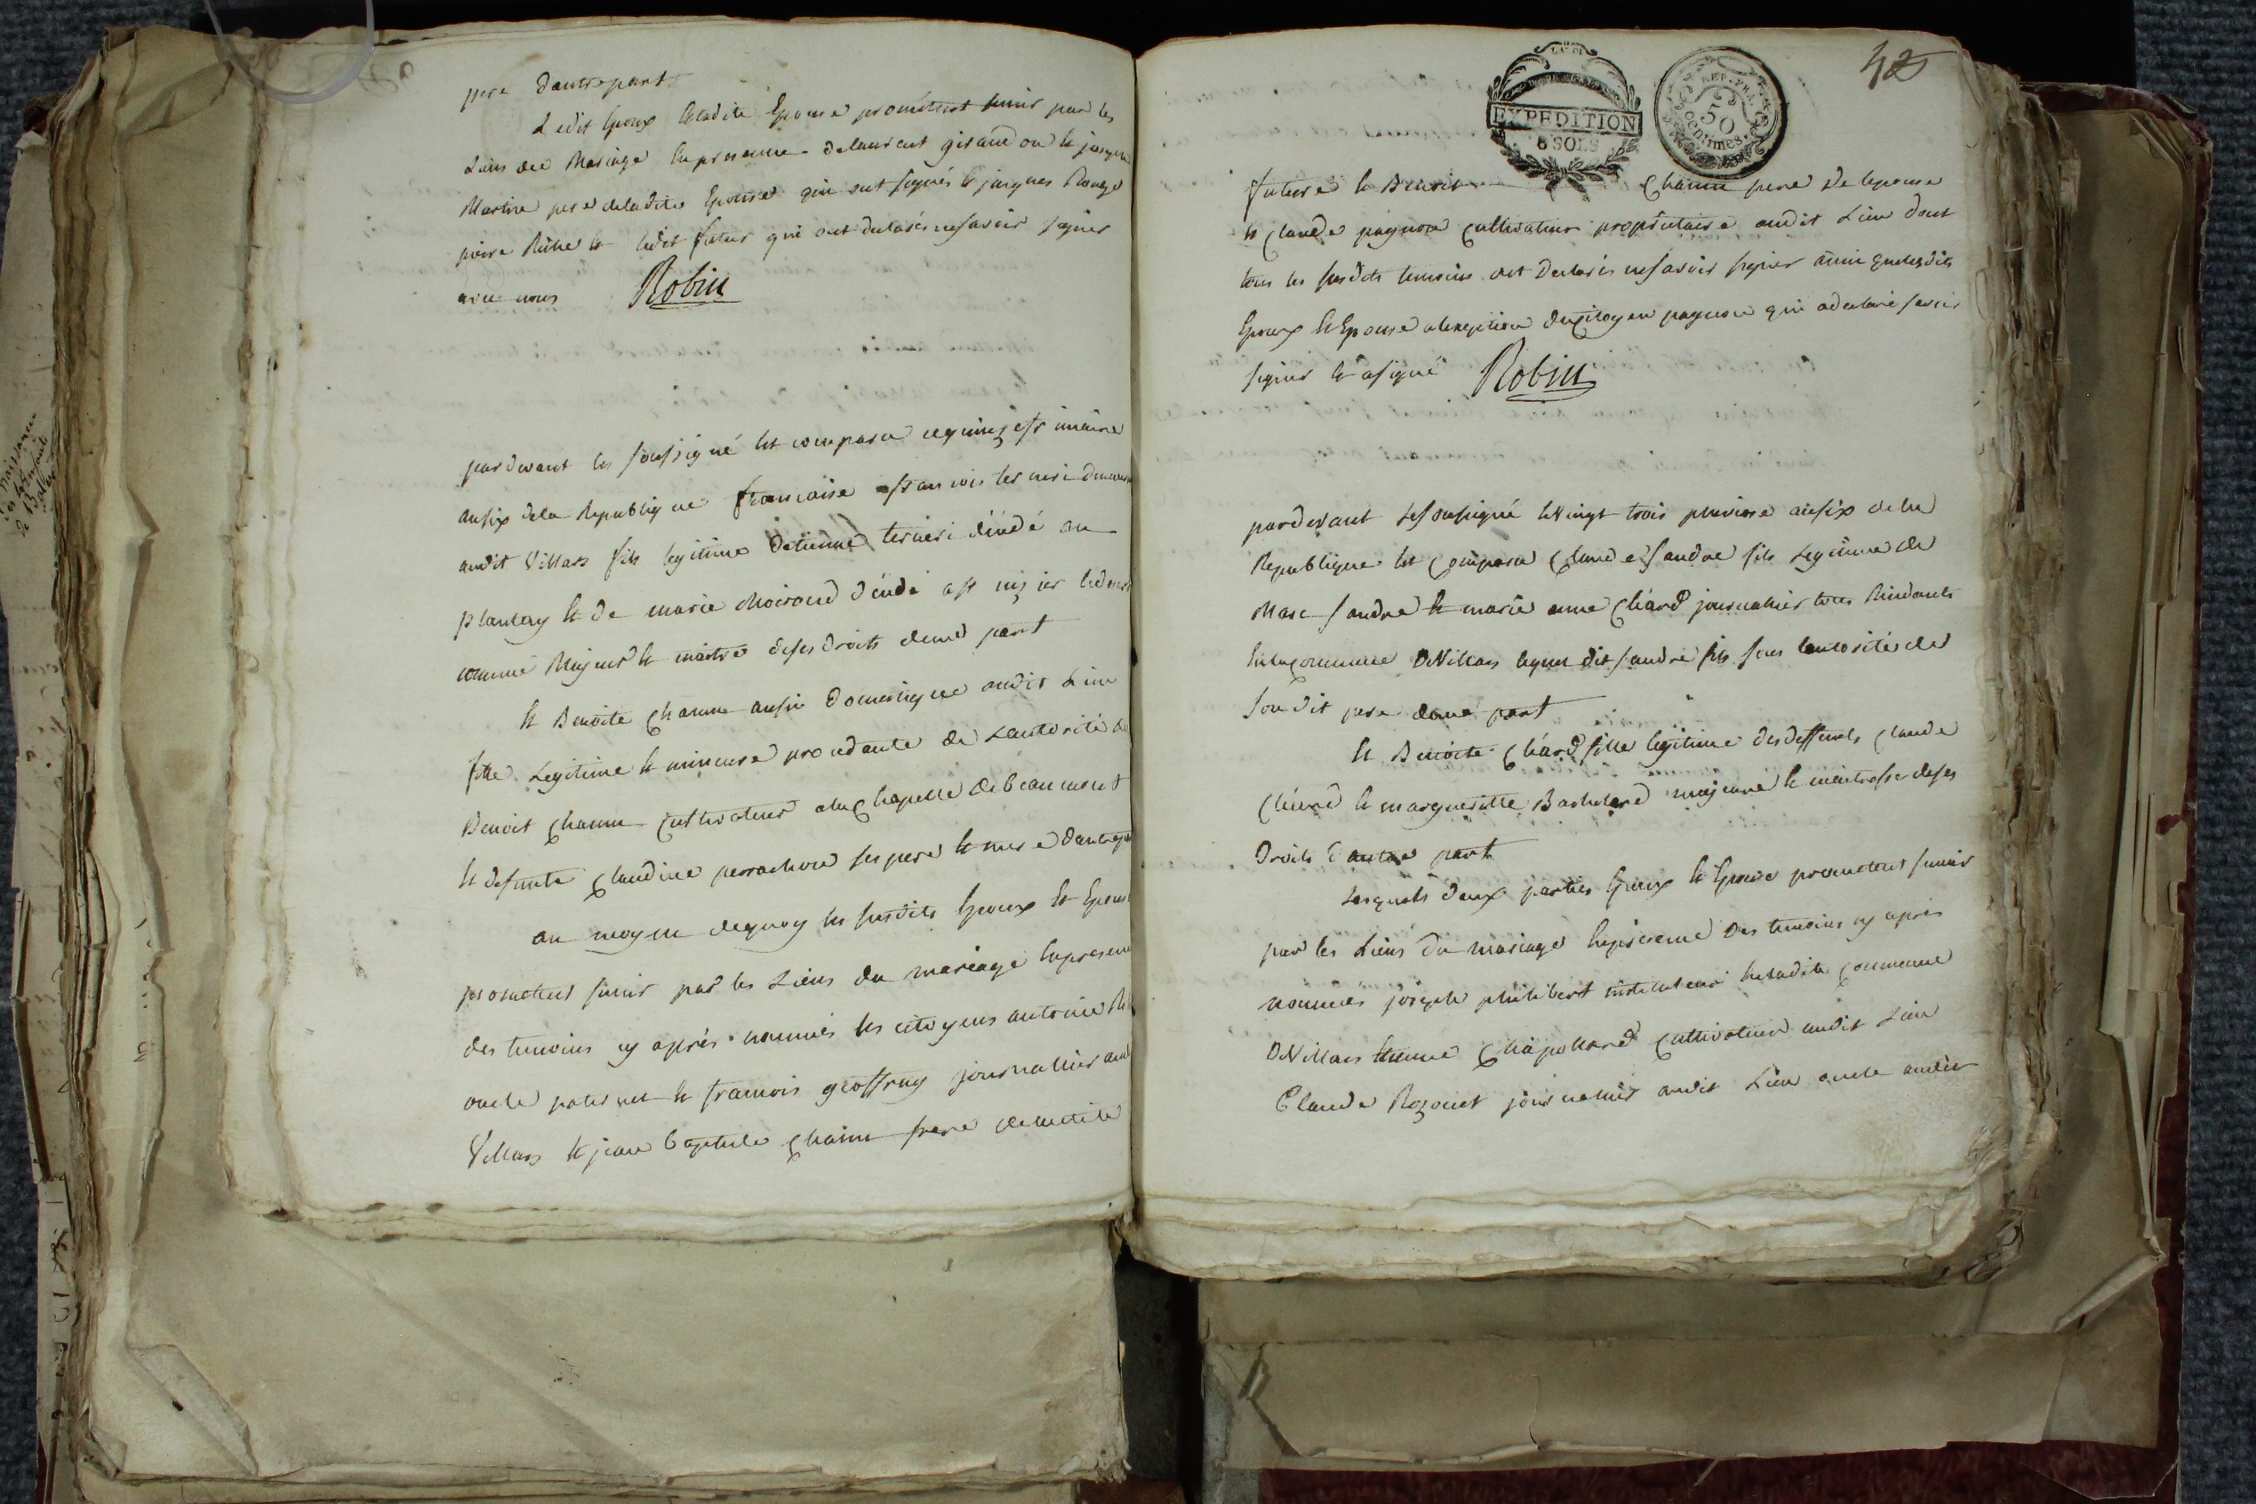 pere dautrepart
Ledit Epoux Et ladite Epouse promettent sunir par les
Liens du Mariage En presence de laurent giraud on et jacque
Martin pere de ladite Epouse qui ont signés et jacques Rouge
pierre et ledit futur qui ont declarés ne savoir signer
avec nous Robin
pardevant les soussigné Est comparu cequinze frimaire
ansix dela Republique francaise francois terrieri demeurant
audit Villars fils legitime detienne terrieri déédé au
plantay et de marie Moiroud
nommé Majeur et maitre deses droits dune part
Et Benoite Chanu aussi Domestique audit Lieu
fille Legitime et mineure procedante de Lautorité de
Benoit Chanu Cultivateur ala Chapelle debeaumont
et defunte Claudine perrachon ses pere et mere dautrepart
au moyen dequoy les susdits Epoux et Epouse
promettent sunir par les Liens du mariage En presence
des temoins cy après nommés les citoyens antoine
oncle paternel et francois geoffray journallier au
Villars et jean baptiste Chanu frere de la dite
42
EXPEDITION
8 SOLS
REP. FRA.
50
centimes
future et Benoit Chanu pere de lepouse
et Claude pagnon Cultivateur proprietaire audit Lieu dont
tous les susdits temoins ont Declarés ne savoir signer ainsi que lesdits
Epoux et Epouse alexeption ducitoyen pagnon qui a declaré savoir
signer et asigné Robin
pardevant Lesoussigné le Vingt trois pluviose ansix de la
Republique Est Comparu Claude Sandre fils Legitime de
Marc Sandre et marie anne Chard journalier tous Residants
En la Commune De Villars lequel dit Sandre fils sous lautorité de
son dit pere dune part
Et Benoite Chard fille legitime des deffunts Claude
Chard et margueritte Bachelard majeure et maitresse deses
Droits d'autre part
Lesquels deux parties Epoux et Epouse promettent sunir
par les Liens du mariage En presence Des temoins cy après
nommés joseph philibert instituteur En ladite Commune
De Villars Etienne Chapolard Cultivateur audit Lieu
Claude Rozouet journalier audit Lieu oncle audit